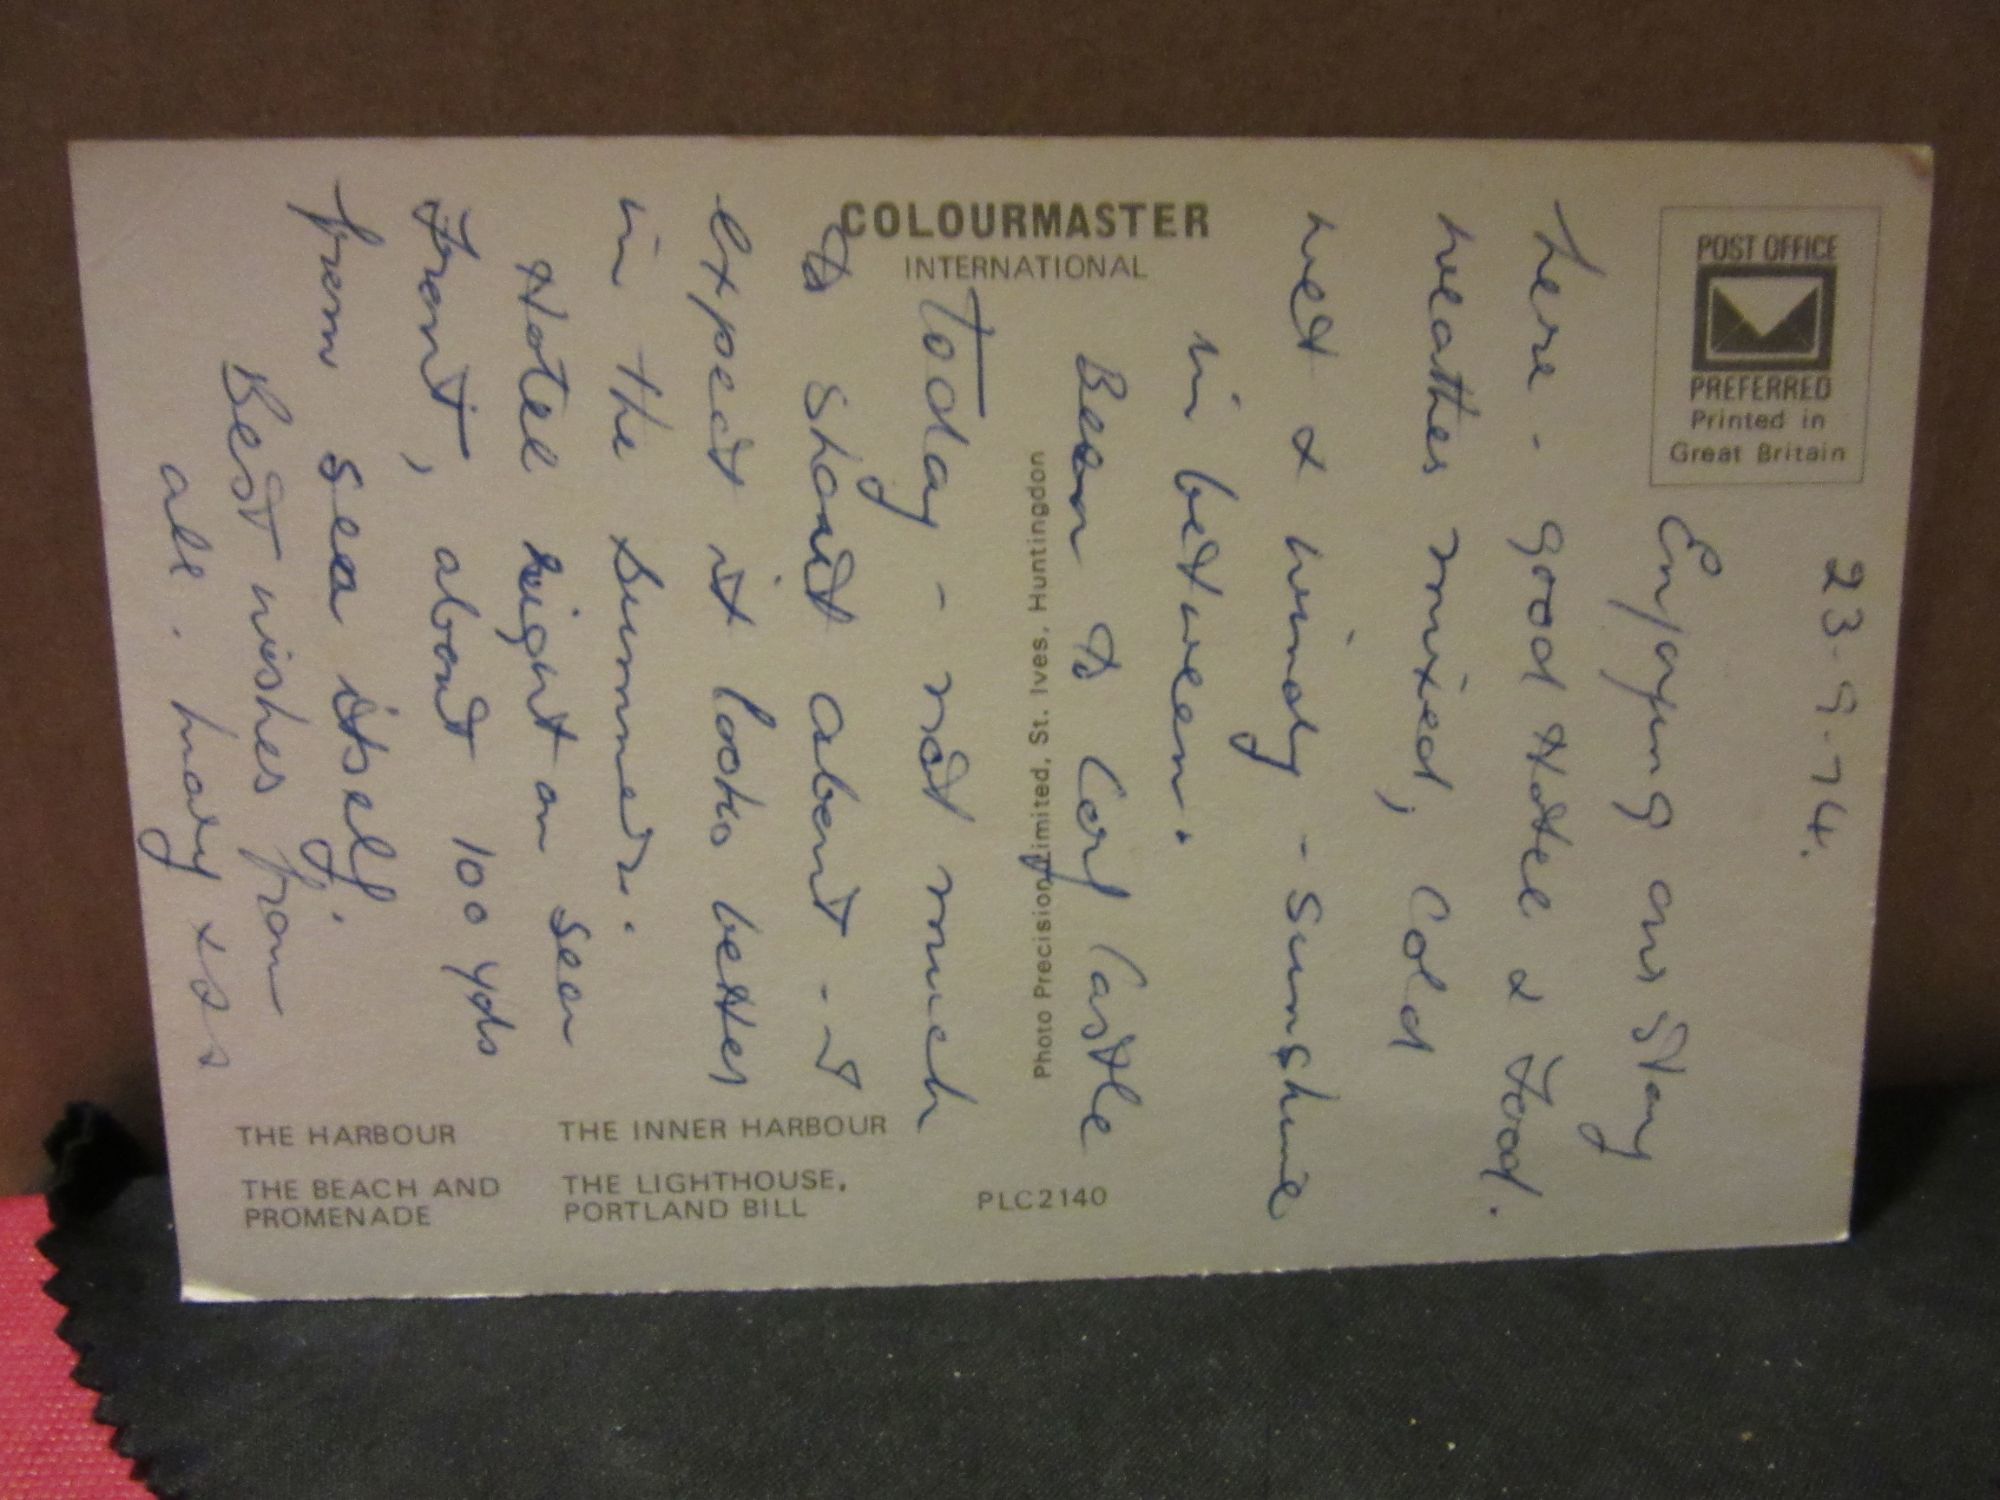 COLOURMASTER
INTERNATIONAL
POST OFFICE
PREFERRED
Printed in
Great Britain
Photo Precision Limited, St. Ives, Huntingdon
THE HARBOUR
THE INNER HARBOUR
THE BEACH AND
PROMENADE
THE LIGHTHOUSE,
PORTLAND BILL
PLC2140
23-9-74.
Enjoying our stay
here - good Hotel & Food.
weather mixed, Cold
wet & windy - Sunshine
in between.
Been to Corf Castle
Today - not much
to shout about - I
expect it looks better
in the Summer.
Hotel right on Sea
Front, about 100 yds
from sea itself.
Best wishes from
all. Mary